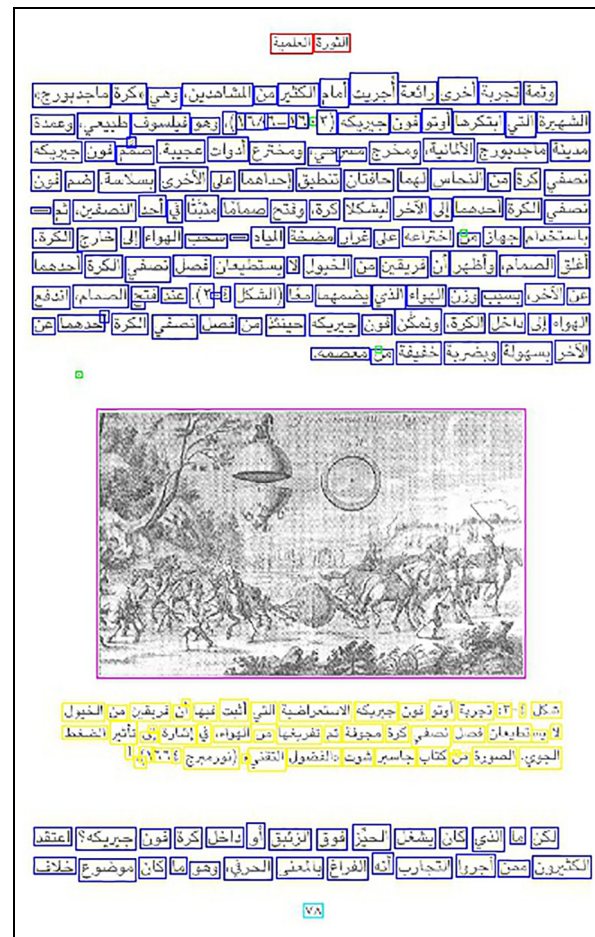 الثورة العلمية
وثمة تجربة أخرى رائعة أجريت أمام الكثير من المشاهدين، وهي «كرة ماجديورج»
الشهيرة التي ابتكرها أوتو فون جيريكه (١٦٠٢–١٦٨٦)، وهو فيلسوف طبيعي، وعمدة
مدينة ماجديبورج الألمانية، ومخرج مسرحي، ومخترع أدوات عجيبة. صمم فون جيريكه
نصفي كرة من النحاس لهما حافتان تنطبق إحداهما على الأخرى بسلاسة. ضم فون
نصفي الكرة أحدهما إلى الآخر ليشكلا كرة، وفتح صمامًا مثبتًا في أحد النصفين، ثم —
باستخدام جهاز من اختراعه على غرار مضخة المياه — سحب الهواء إلى خارج الكرة.
أغلق الصمام، وأظهر أن فريقين من الخيول لا يستطيعان فصل نصفي الكرة أحدهما
عن الآخر، بسبب وزن الهواء الذي يضمهما معًا (الشكل ٤-٣). عند فتح الصمام، اندفع
الهواء إلى داخل الكرة، وتمكَّن فون جيريكه حينئذ من فصل نصفي الكرة أحدهما عن
الآخر بسهولة وبضربة خفيفة من معصمه.
شكل ٤-٣: تجربة أوتو فون جيريكه الاستعراضية التي أثبت فيها أن فريقين من الخيول
لا يستطيعان فصل نصفي كرة مجوفة تم تفريغها من الهواء، في إشارة إلى تأثير الضغط
الجوي. الصورة من كتاب جاسبر شوت «الفضول التقني» (نورمبرج ١٦٦٤).
لكن ما الذي كان يشغل الحيِّز فوق الزئبق أو داخل كرة فون جيريكه؟ اعتقد
الكثيرون ممن أجروا التجارب أنه الفراغ بالمعنى الحرفي، وهو ما كان موضوع خلاف
٧٨